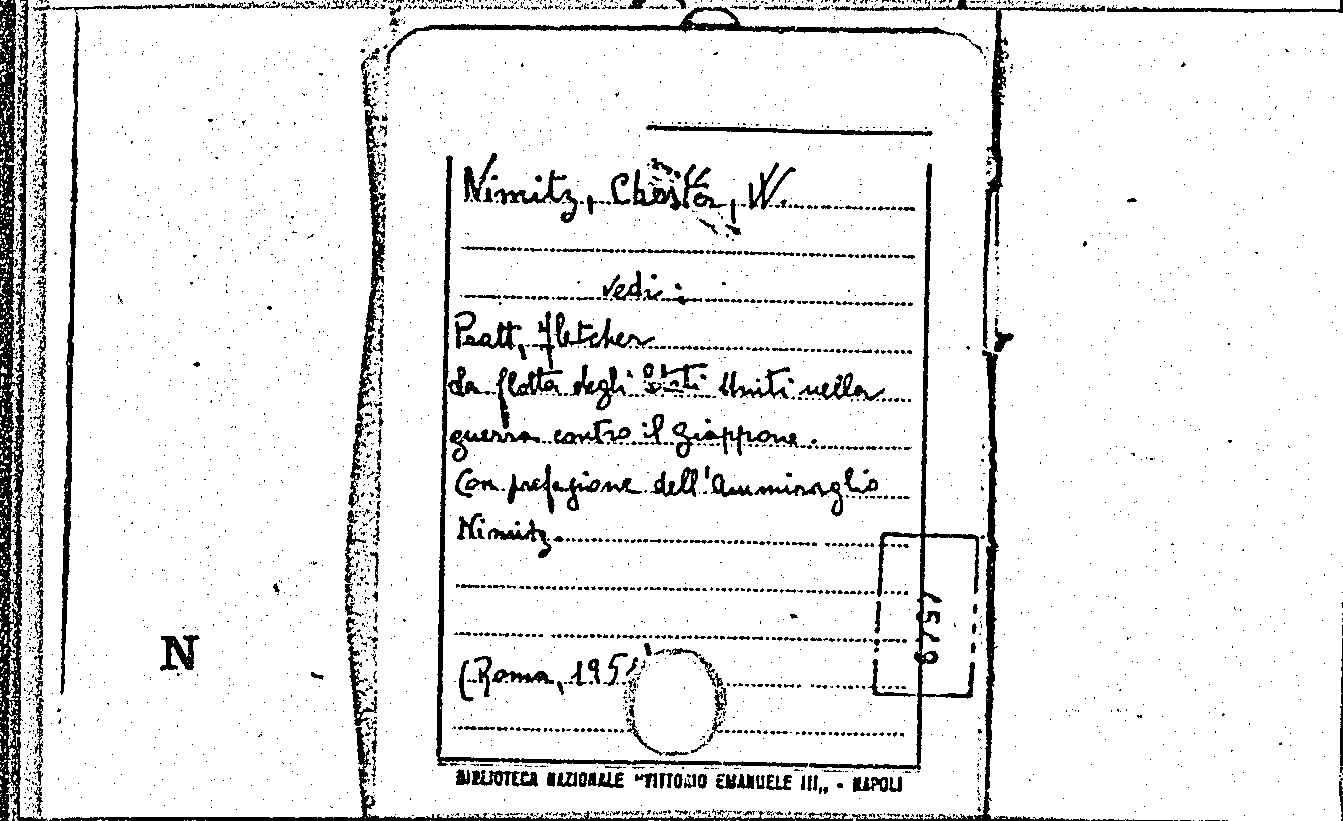 Nimitz, Chester, W.
vedi:
Pratt, Fletcher
La flotta degli Stati Uniti nella
guerra contro il Giappone.
Con prefazione dell'Ammiraglio
Nimitz.
(Roma, 195
N
BIBLIOTECA NAZIONALE "VITTORIO EMANUELE III„ - NAPOLI